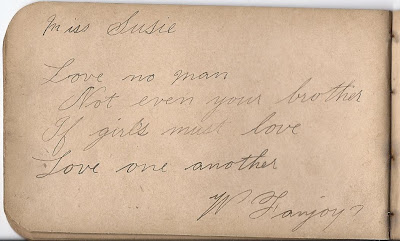 Miss Susie
Love no man
Not even your brother
If girls must love
Love one another
W Fanjoy